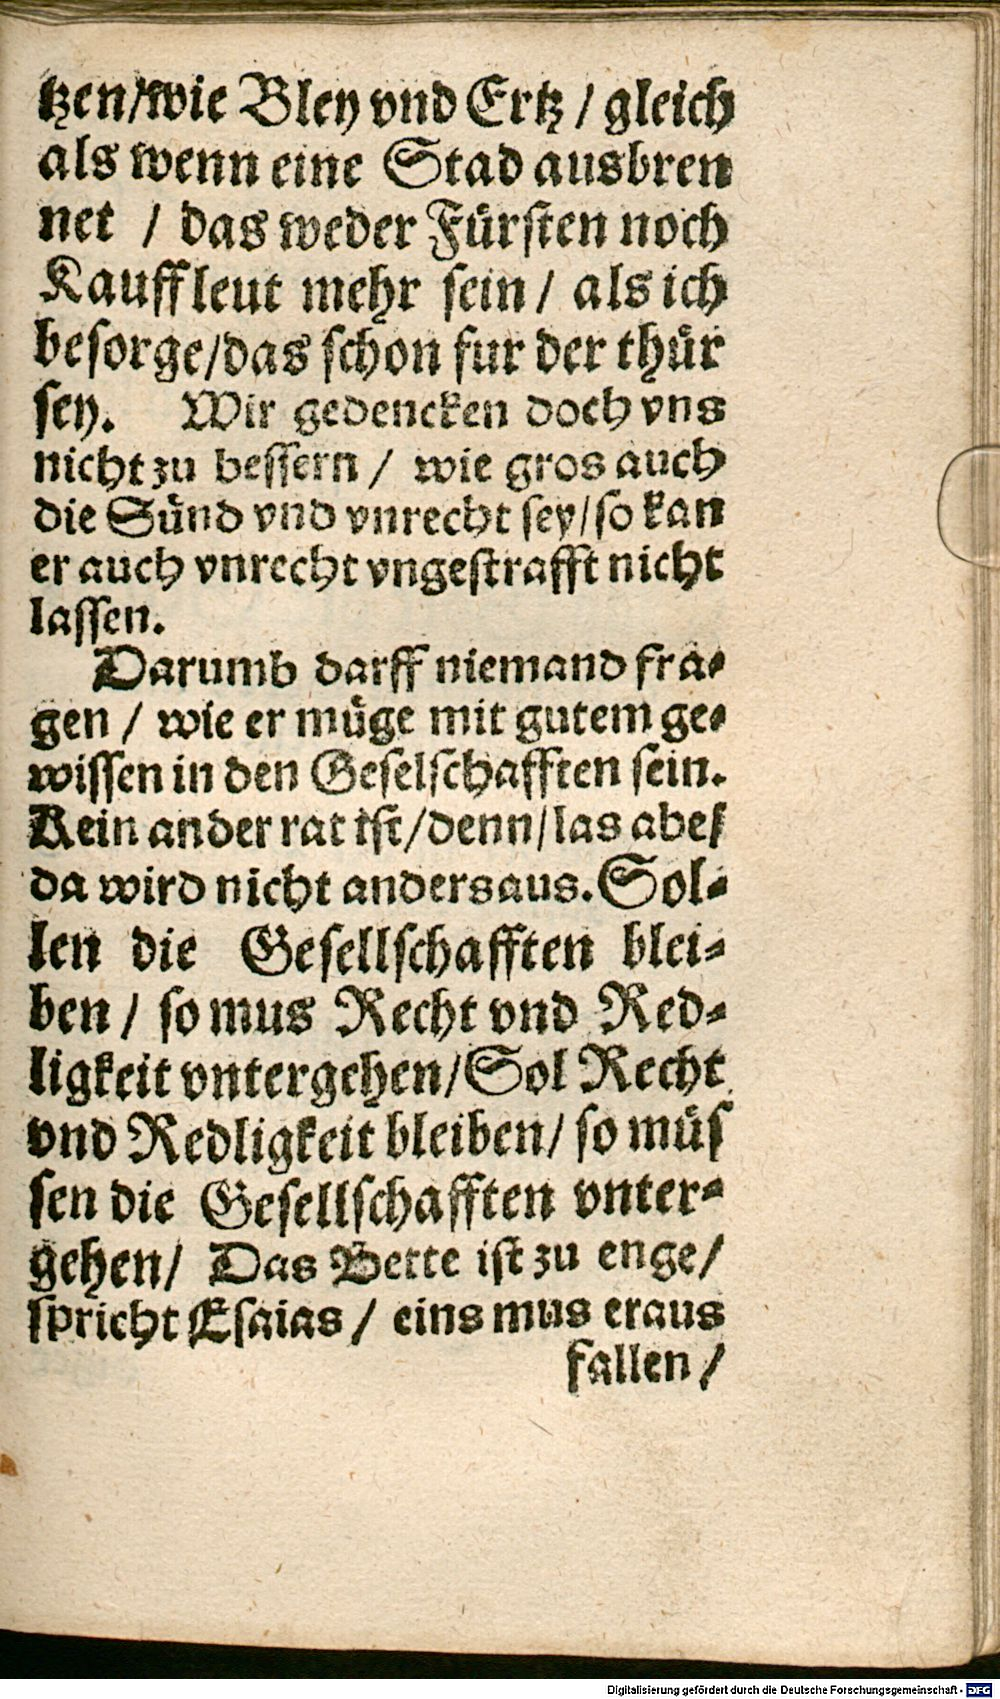 tzen/wie Bley vnd Ertz / gleich
als wenn eine Stad ausbren
net / das weder Fürsten noch
Kauffleut mehr sein / als ich
besorge/das schon fur der thür
sey. Wir gedencken doch vns
nicht zu bessern / wie gros auch
die Sünd vnd vnrecht sey/so kan
er auch vnrecht vngestrafft nicht
lassen.
Darumb darff niemand fra-
gen / wie er müge mit gutem ge-
wissen in den Geselschafften sein.
Kein ander rat ist/denn/las abe/
da wird nicht anders aus. Sol-
len die Gesellschafften blei-
ben / so mus Recht vnd Red-
ligkeit vntergehen/Sol Recht
vnd Redligkeit bleiben/ so müs
sen die Gesellschafften vnter-
gehen/ Das Bette ist zu enge/
spricht Esaias / eins mus eraus
fallen /
Digitalisierung gefördert durch die Deutsche Forschungsgemeinschaft - DFG